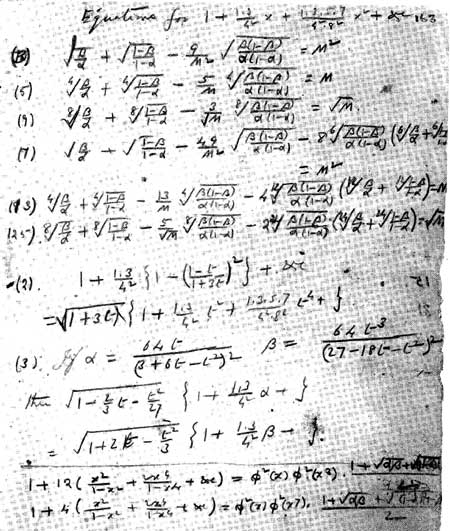 Equations for 1 + 1·3/4² x + 1·3·5·7/4²·8² x² + &c 163
√(β/α) + √((1-β)/(1-α)) - 9/m² √(β(1-β)/α(1-α)) = m²
(5) ∜(β/α) + ∜((1-β)/(1-α)) - 5/m ∜(β(1-β)/α(1-α)) = m
(9) ⁸√(β/α) + ⁸√((1-β)/(1-α)) - 3/√m ⁸√(β(1-β)/α(1-α)) = √m
(7) √(β/α) + √((1-β)/(1-α)) - 49/m² √(β(1-β)/α(1-α)) - 8 ⁶√(β(1-β)/α(1-α)) (⁶√(β/α) +
= m²
(13) ∜(β/α) + ∜((1-β)/(1-α)) - 13/m ∜(β(1-β)/α(1-α)) - 4 ¹²√(β(1-β)/α(1-α)) (¹²√(β/α) + ¹²√((1-β)/(1-α))) = m
(25) ⁸√(β/α) + ⁸√((1-β)/(1-α)) - 5/√m ⁸√(β(1-β)/α(1-α)) - 2 ²⁴√(β(1-β)/α(1-α)) (²⁴√(β/α) + ²⁴√((1-β)/(1-α))) = √m
(2). 1 + 1·3/4² {1 - ((1-t)/(1+3t))²} + &c
= √(1+3t) {1 + 1·3/4² t² + 1·3·5·7/4²·8² t⁴ + }
(3). If α = 64t/(3+6t-t²)² β = 64t³/(27-18t-t²)²
then √(1 - 2/3 t - t²/27) {1 + 1·3/4² α + }
= √(1+2t - t²/3) {1 + 1·3/4² β + }.
1 + 12(x²/(1-x²) + 2x⁴/(1-x⁴) + &c) = φ²(x) φ²(x³). 1+√αβ +
1 + 4(x²/(1-x²) + 2x⁴/(1-x⁴) + &c) = φ²(x) φ²(x⁷). 1+√αβ + / 2